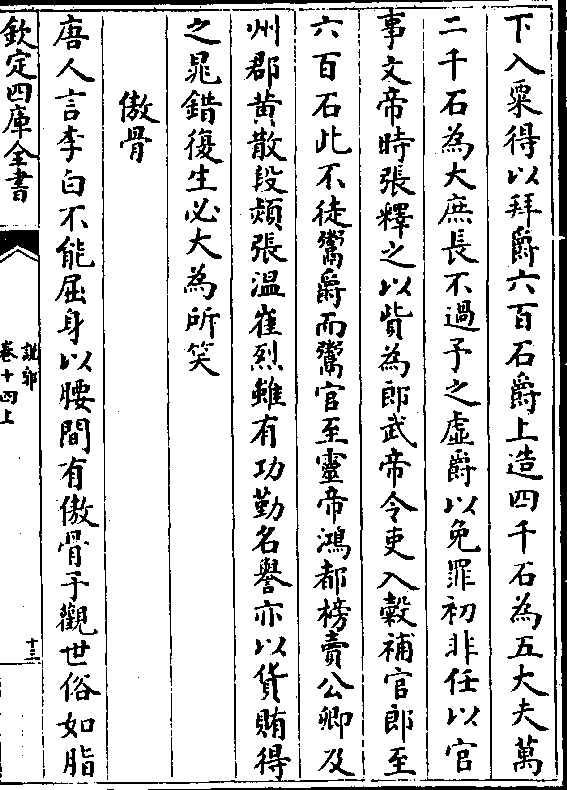 下入粟得以拜爵六百石爵上造四千石為五大夫萬
二千石為大庶長不過予之虛爵以免罪初非任以官
事文帝時張釋之以貲為郎武帝令吏入穀補官郎至
六百石此不徒鬻爵而鬻官至靈帝鴻都榜賣公卿及
州郡黄散段熲張溫崔烈雖有功勤名譽亦以貨賄得
之晁錯復生必大為所笑
傲骨
唐人言李白不能屈身以腰間有傲骨予觀世俗如脂
欽定四庫全書
說郛
卷十四上
十三